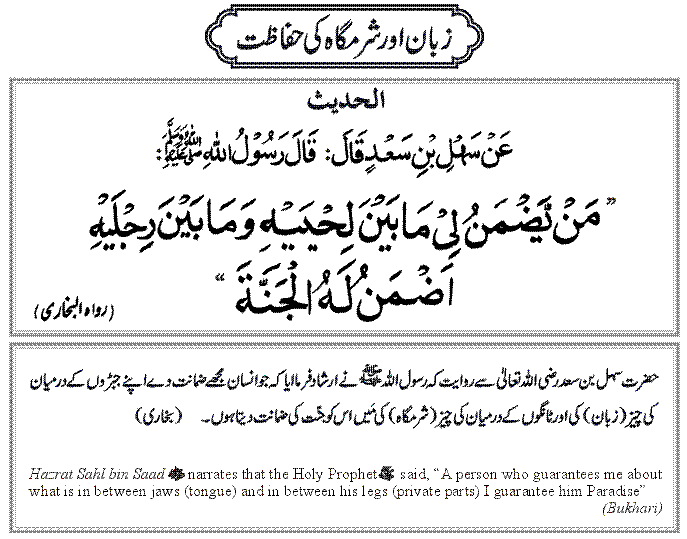 زبان اور شرمگاہ کی حفاظت
الحديث
عَنْ سَهْلِ بْنِ سَعْدٍ قَالَ: قَالَ رَسُوْلُ اللهِ ﷺ:
”مَنْ يَّضْمَنُ لِىْ مَا بَيْنَ لِحْيَيْهِ وَمَا بَيْنَ رِجْلَيْهِ
اَضْمَنُ لَهُ الْجَنَّةَ“
(رواه البخاری)
حضرت سہل بن سعد رضی اللہ تعالیٰ سے روایت کہ رسول اللہ ﷺ نے ارشاد فرمااپا کہ جو انسان مجھے ضمانت دے اپنے جبڑوں کے درمیان
کی چیز (زبان) کی اور ٹانگوں کے درمیان کی چیز (شرمگاہ) کی میں اس کو جنّت کی ضمانت دیتا ہوں۔ (بخاری)
Hazrat Sahl bin Saad narrates that the Holy Prophet said, “A person who guarantees me about
what is in between jaws (tongue) and in between his legs (private parts) I guarantee him Paradise”
(Bukhari)